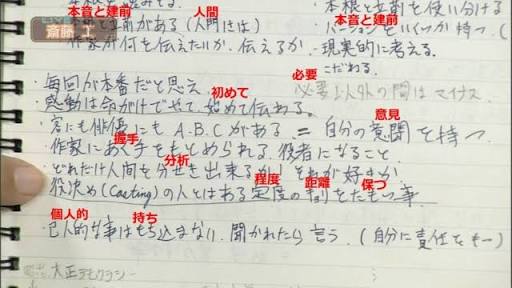 斎藤 工
本音と建前
人間
本音と建前
本根と立前を使い分ける
立前がある(人間には)
・バージョンをいくつか持つ
作家が何を伝えたいか、伝えるか
・現実的に考える。
こだわる。
・毎回が本番だと思え
初めて
必要
必要以外の間はマイナス
・感動は命がけでやって、始めて伝わる。
意見
・客にも俳優にもA.B.Cがある = 自分の意聞を持つ
握手
・作家にあく手をもとめられる役者になること
分析
・どれだけ人間を分せき出来るか それが好きか
程度
距離
保つ
・役決め(Casting)の人とはある定度の
をたもつ事
個人的
持ち
・己人的な事はもち込まない、聞かれたら言う。(自分に責任をもつ)
大正デモクラシー